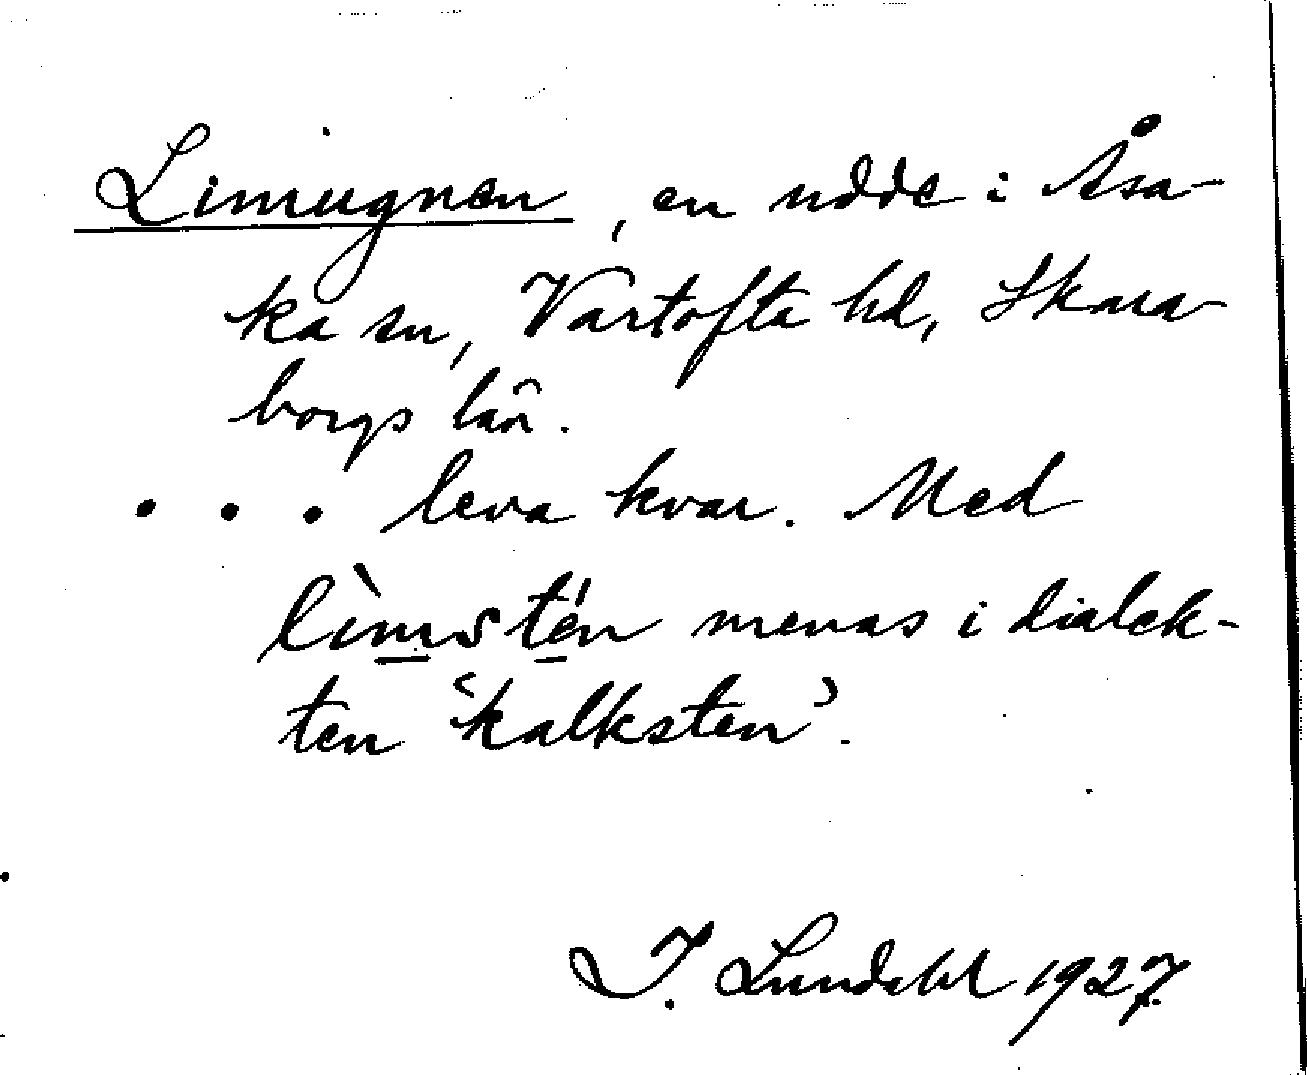 Limugnen, en udde i Åsa-
ka sn, Vartofta hd, Skara-
borgs län.
. . . leva kvar. Med
lìmstén menas i dialek-
ten 'kalksten'.
I. Lundahl 1927.